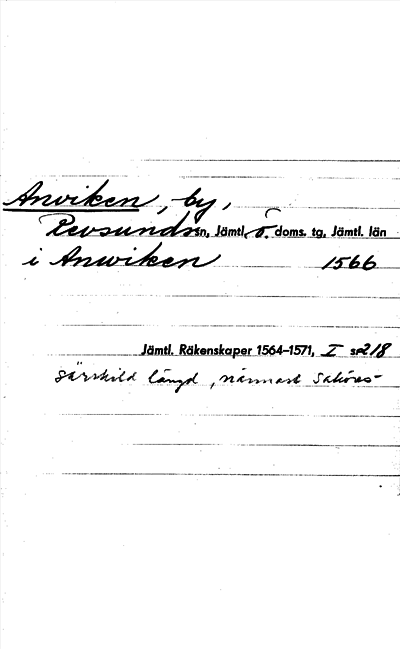 Anviken, by,
Revsunds sn, Jämtl. ö. doms. tg, Jämtl. län
i Anwiken 1566
Jämtl. Räkenskaper 1564–1571, I s 218
särskild längd, närmast